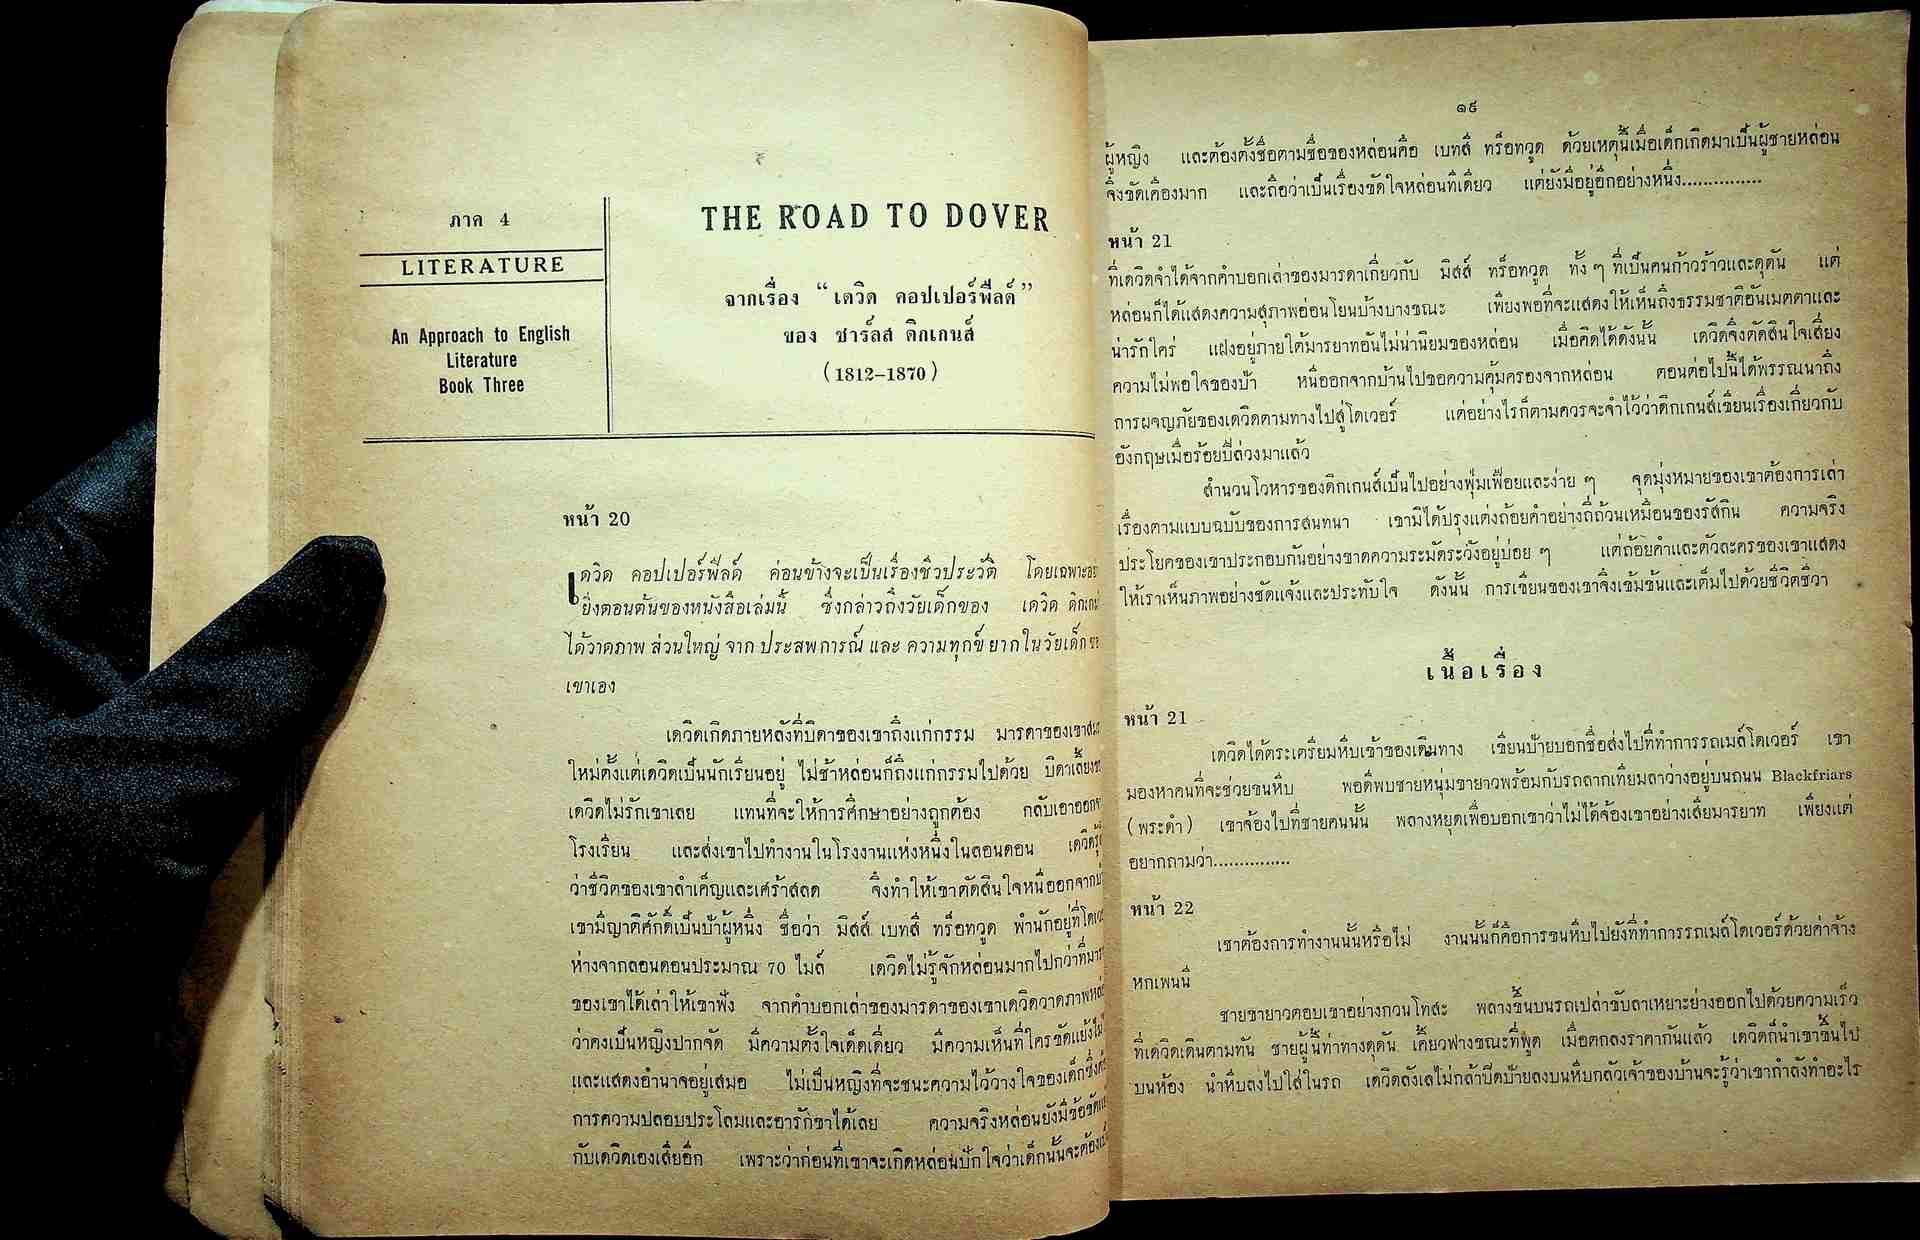 ภาค 4
LITERATURE
An Approach to English
Literature
Book Three
THE ROAD TO DOVER
จากเรื่อง “เดวิด คอปเปอร์ฟีลด์”
ของ ชาร์ลส ดิกเกนส์
(1812–1870)
หน้า 20
เดวิด คอปเปอร์ฟีลด์ ค่อนข้างจะเป็นเรื่องชีวประวัติ โดยเฉพาะ
ยิ่งตอนต้นของหนังสือเล่มนี้ ซึ่งกล่าวถึงวัยเด็กของ เดวิด
ได้วาดภาพ ส่วนใหญ่ จาก ประสพการณ์ และ ความทุกข์ ยาก ใน วัยเด็ก
เขาเอง
เดวิดเกิดภายหลังที่บิดาของเขาถึงแก่กรรม มารดาของเขา
ใหม่ตั้งแต่เดวิดเป็นนักเรียนอยู่ ไม่ช้าหล่อนก็ถึงแก่กรรมไปด้วย บิดาเลี้ยง
เดวิดไม่รักเขาเลย แทนที่จะให้การศึกษาอย่างถูกต้อง กลับเอาออก
โรงเรียน และส่งเขาไปทำงานในโรงงานแห่งหนึ่งในลอนดอน
ว่าชีวิตของเขาลำเค็ญและเศร้าสลด จึงทำให้เขาตัดสินใจหนีออกจาก
เขามีญาติศักดิ์เป็นป้าผู้หนึ่ง ชื่อว่า มิสส์ เบทสี ทร็อทวูด พำนักอยู่ที่
ห่างจากลอนดอนประมาณ 70 ไมล์ เดวิดไม่รู้จักหล่อนมากไปกว่าที่
ของเขาได้เล่าให้เขาฟัง จากคำบอกเล่าของมารดาของเขาเดวิดวาดภาพ
ว่าคงเป็นหญิงปากจัด มีความตั้งใจเด็ดเดี่ยว มีความเห็นที่ใครขัดแย้ง
และแสดงอำนาจอยู่เสมอ ไม่เป็นหญิงที่จะชนะความไว้วางใจของเด็ก
การความปลอบประโลมและอารักขาได้เลย ความจริงหล่อนยังมี
กับเดวิดเองเสียอีก เพราะว่าก่อนที่เขาจะเกิดหล่อนปักใจว่าเด็กนั้นจะต้อง
๑๙
ผู้หญิง และต้องตั้งชื่อตามชื่อของหล่อนคือ เบทสี ทร็อทวูด ด้วยเหตุนี้เมื่อเด็กเกิดมาเป็นผู้ชายหล่อน
จึงขัดเคืองมาก และถือว่าเป็นเรื่องขัดใจหล่อนทีเดียว แต่ยังมีอยู่อีกอย่างหนึ่ง...............
หน้า 21
ที่เดวิดจำได้จากคำบอกเล่าของมารดาเกี่ยวกับ มิสส์ ทร็อทวูด ทั้ง ๆ ที่เป็นคนก้าวร้าวและดุดัน แต่
หล่อนก็ได้แสดงความสุภาพอ่อนโยนบ้างบางขณะ เพียงพอที่จะแสดงให้เห็นถึงธรรมชาติอันเมตตาและ
น่ารักใคร่ แฝงอยู่ภายใต้มารยาทอันไม่น่านิยมของหล่อน เมื่อคิดได้ดังนั้น เดวิดจึงตัดสินใจเสี่ยง
ความไม่พอใจของป้า หนีออกจากบ้านไปขอความคุ้มครองจากหล่อน ตอนต่อไปนี้ได้พรรณนาถึง
การผจญภัยของเดวิดตามทางไปสู่โดเวอร์ แต่อย่างไรก็ตามควรจะจำไว้ว่าดิกเกนส์เขียนเรื่องเกี่ยวกับ
อังกฤษเมื่อร้อยปีล่วงมาแล้ว
สำนวนโวหารของดิกเกนส์เป็นไปอย่างฟุ่มเฟือยและง่าย ๆ จุดมุ่งหมายของเขาต้องการเล่า
เรื่องตามแบบฉบับของการสนทนา เขามิได้ปรุงแต่งถ้อยคำอย่างถี่ถ้วนเหมือนของรัสกิน ความจริง
ประโยคของเขาประกอบกันอย่างขาดความระมัดระวังอยู่บ่อย ๆ แต่ถ้อยคำและตัวละครของเขาแสดง
ให้เราเห็นภาพอย่างชัดแจ้งและประทับใจ ดังนั้น การเขียนของเขาจึงเข้มข้นและเต็มไปด้วยชีวิตชีวา
เนื้อเรื่อง
หน้า 21
เดวิดได้ตระเตรียมหีบเข้าของเดินทาง เขียนป้ายบอกชื่อส่งไปที่ทำการรถเมล์โดเวอร์ เขา
มองหาคนที่จะช่วยขนหีบ พอดีพบชายหนุ่มขายาวพร้อมกับรถลากเทียมลาว่างอยู่บนถนน Blackfriars
(พระดำ) เขาจ้องไปที่ชายคนนั้น พลางหยุดเพื่อบอกเขาว่าไม่ได้จ้องเขาอย่างเสียมารยาท เพียงแต่
อยากถามว่า...............
หน้า 22
เขาต้องการทำงานนั้นหรือไม่ งานนั้นก็คือการขนหีบไปยังที่ทำการรถเมล์โดเวอร์ด้วยค่าจ้าง
หกเพนนี
ชายขายาวตอบเขาอย่างกวนโทสะ พลางขึ้นบนรถเปล่าขับลาเหยาะย่างออกไปด้วยความเร็ว
ที่เดวิดเดินตามทัน ชายผู้นี้ท่าทางดุดัน เคี้ยวฟางขณะที่พูด เมื่อตกลงราคากันแล้ว เดวิดก็นำเขาขึ้นไป
บนห้อง นำหีบลงไปใส่ในรถ เดวิดลังเลไม่กล้าปิดป้ายลงบนหีบกลัวเจ้าของบ้านจะรู้ว่าเขากำลังทำอะไร